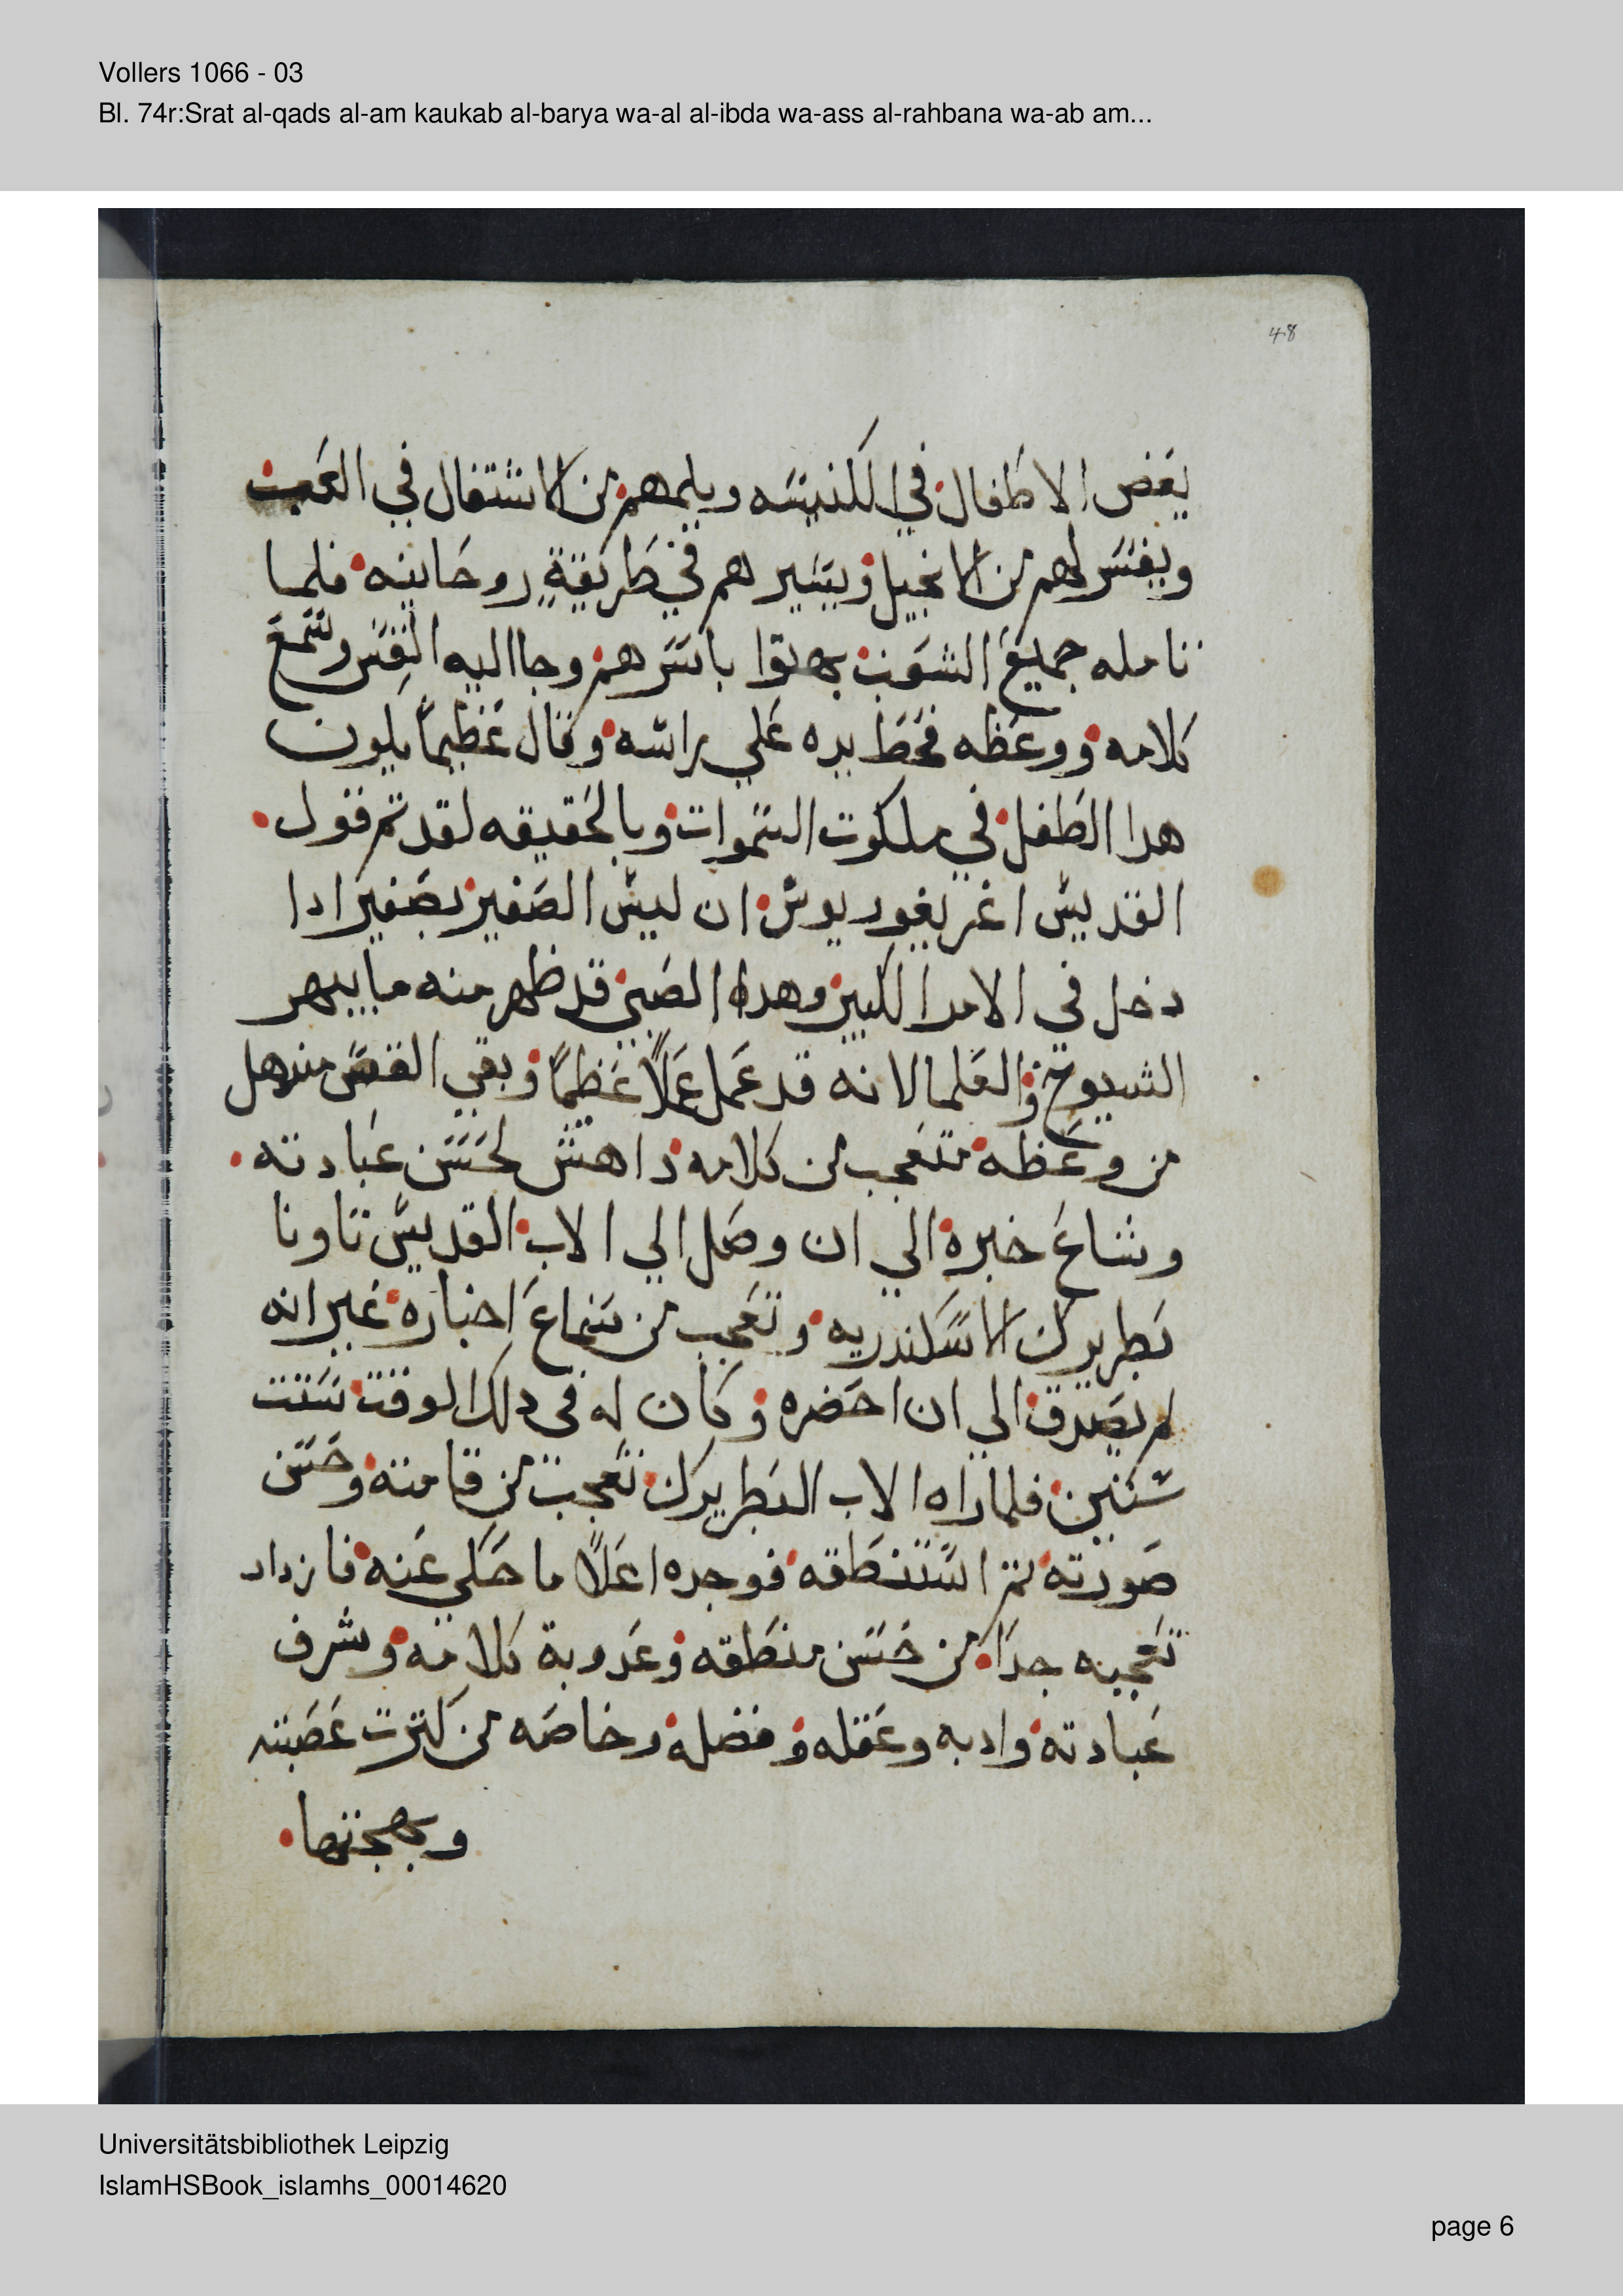 Vollers 1066 - 03
Bl. 74r:Srat al-qads al-am kaukab al-barya wa-al al-ibda wa-ass al-rahbana wa-ab am...
48
بعض الاطفال في الكنيسه ويلمهم من الاشتغال في العبث
ويفسر لهم من الانجيل ويسير هم في طريقةٍ روحانيه فلما
تامله جميع الشعب بهتوا باسرهم وجا اليه القس وسمع
كلامه ووعظه فحط يده علي راسه وقال عظيماً يكون
هدا الطفل في ملكوت السموات وبالحقيقه لقد تم قول
القديس اغريغوريوس ان ليس الصغير بصغير ادا
دخل في الامد الكبير وهدا الصبي قد ظهر منه ما يبهر
الشيوخ والعلما لانه قد عمل عملاً عظيماً وبقي القس مندهل
من وعظه متعجب من كلامه داهش لحسن عبادته
وشاع خبره الي ان وصل الي الاب القديس تاونا
بطريرك الاسكندريه وتعجب من سماع اخباره غير انه
لم يصدق الي ان احضره وكان له في دلك الوقت ستت
سنين فلما راه الاب البطريرك تعجب من قامته وحسن
صورته تم استنطقه فوجده اعلاً ما حكي عنه فازداد
تعجبه جدا من حسن منطقه وعدوبة كلامه وشرف
عبادته وادبه وعقله وفضله وخاصه من كترت عصبته
وبهجتها
Universitätsbibliothek Leipzig
IslamHSBook_islamhs_00014620
page 6